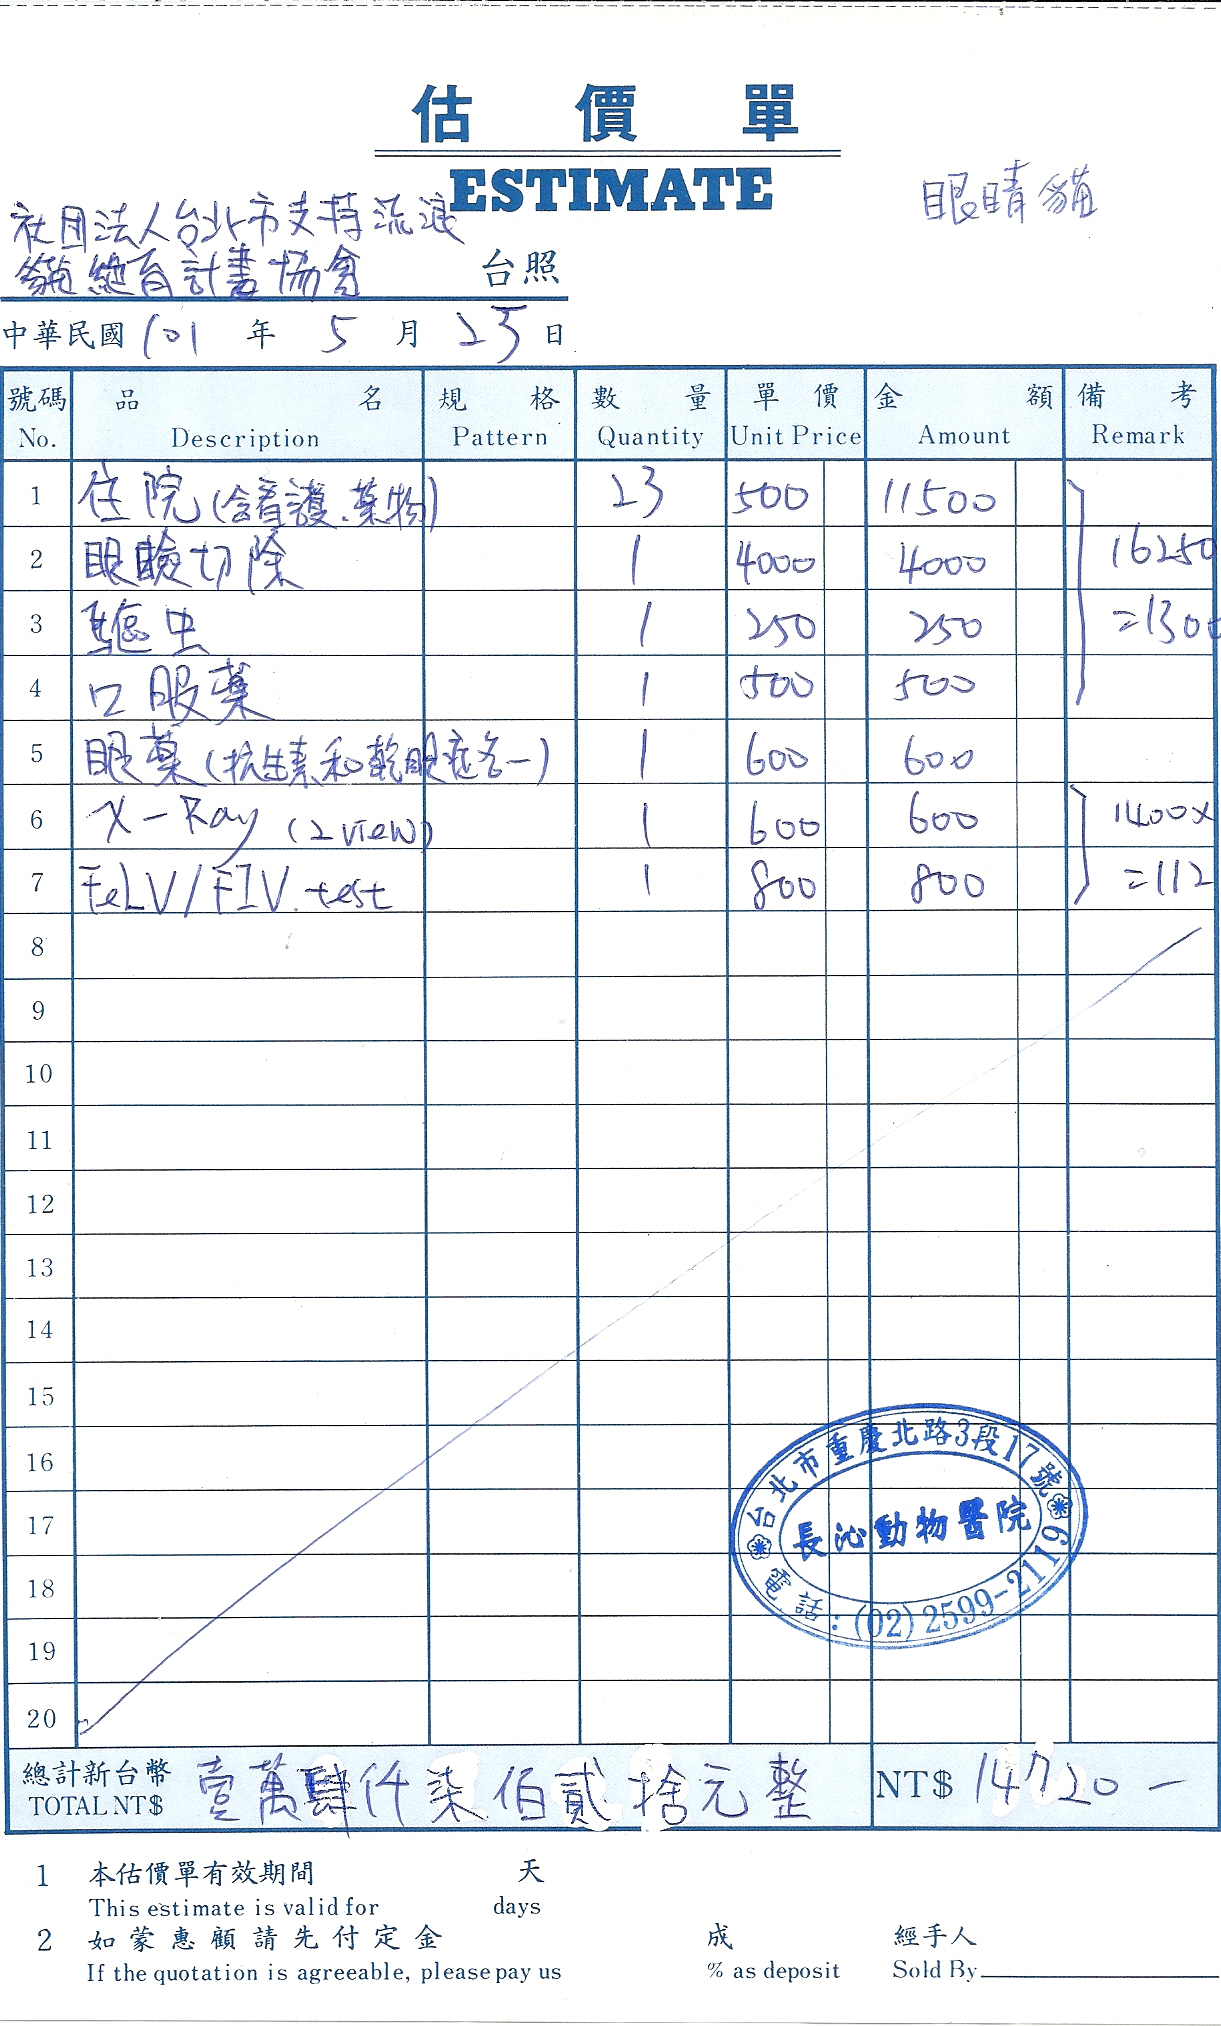 估價單
ESTIMATE
眼睛貓
社团法人台北市支持流浪
貓絕育計畫協會 台照
中華民國 101 年 5 月 23 日
號碼 品名 規格 數量 單價 金額 備考
No. Description Pattern Quantity Unit Price Amount Remark
1 住院(含看護、藥物) 23 500 11500
2 眼瞼切除 1 4000 4000 16250
3 驅虫 1 250 250 =1300
4 口服藥 1 500 500
5 眼藥(抗生素和乾眼症各一) 1 600 600
6 X-Ray (2 view) 1 600 600 1400x
7 FeLV/FIV test 1 800 800 =112
8
9
10
11
12
13
14
15
16
17
18
19
20
台北市重慶北路3段17號
長沁動物醫院
電話:(02)2599-2119
總計新台幣 壹萬肆仟柒佰貳拾元整
TOTAL NT$ NT$ 14720-
1 本估價單有效期間 天
This estimate is valid for days
2 如蒙惠顧請先付定金 成 經手人
If the quotation is agreeable, please pay us % as deposit Sold By